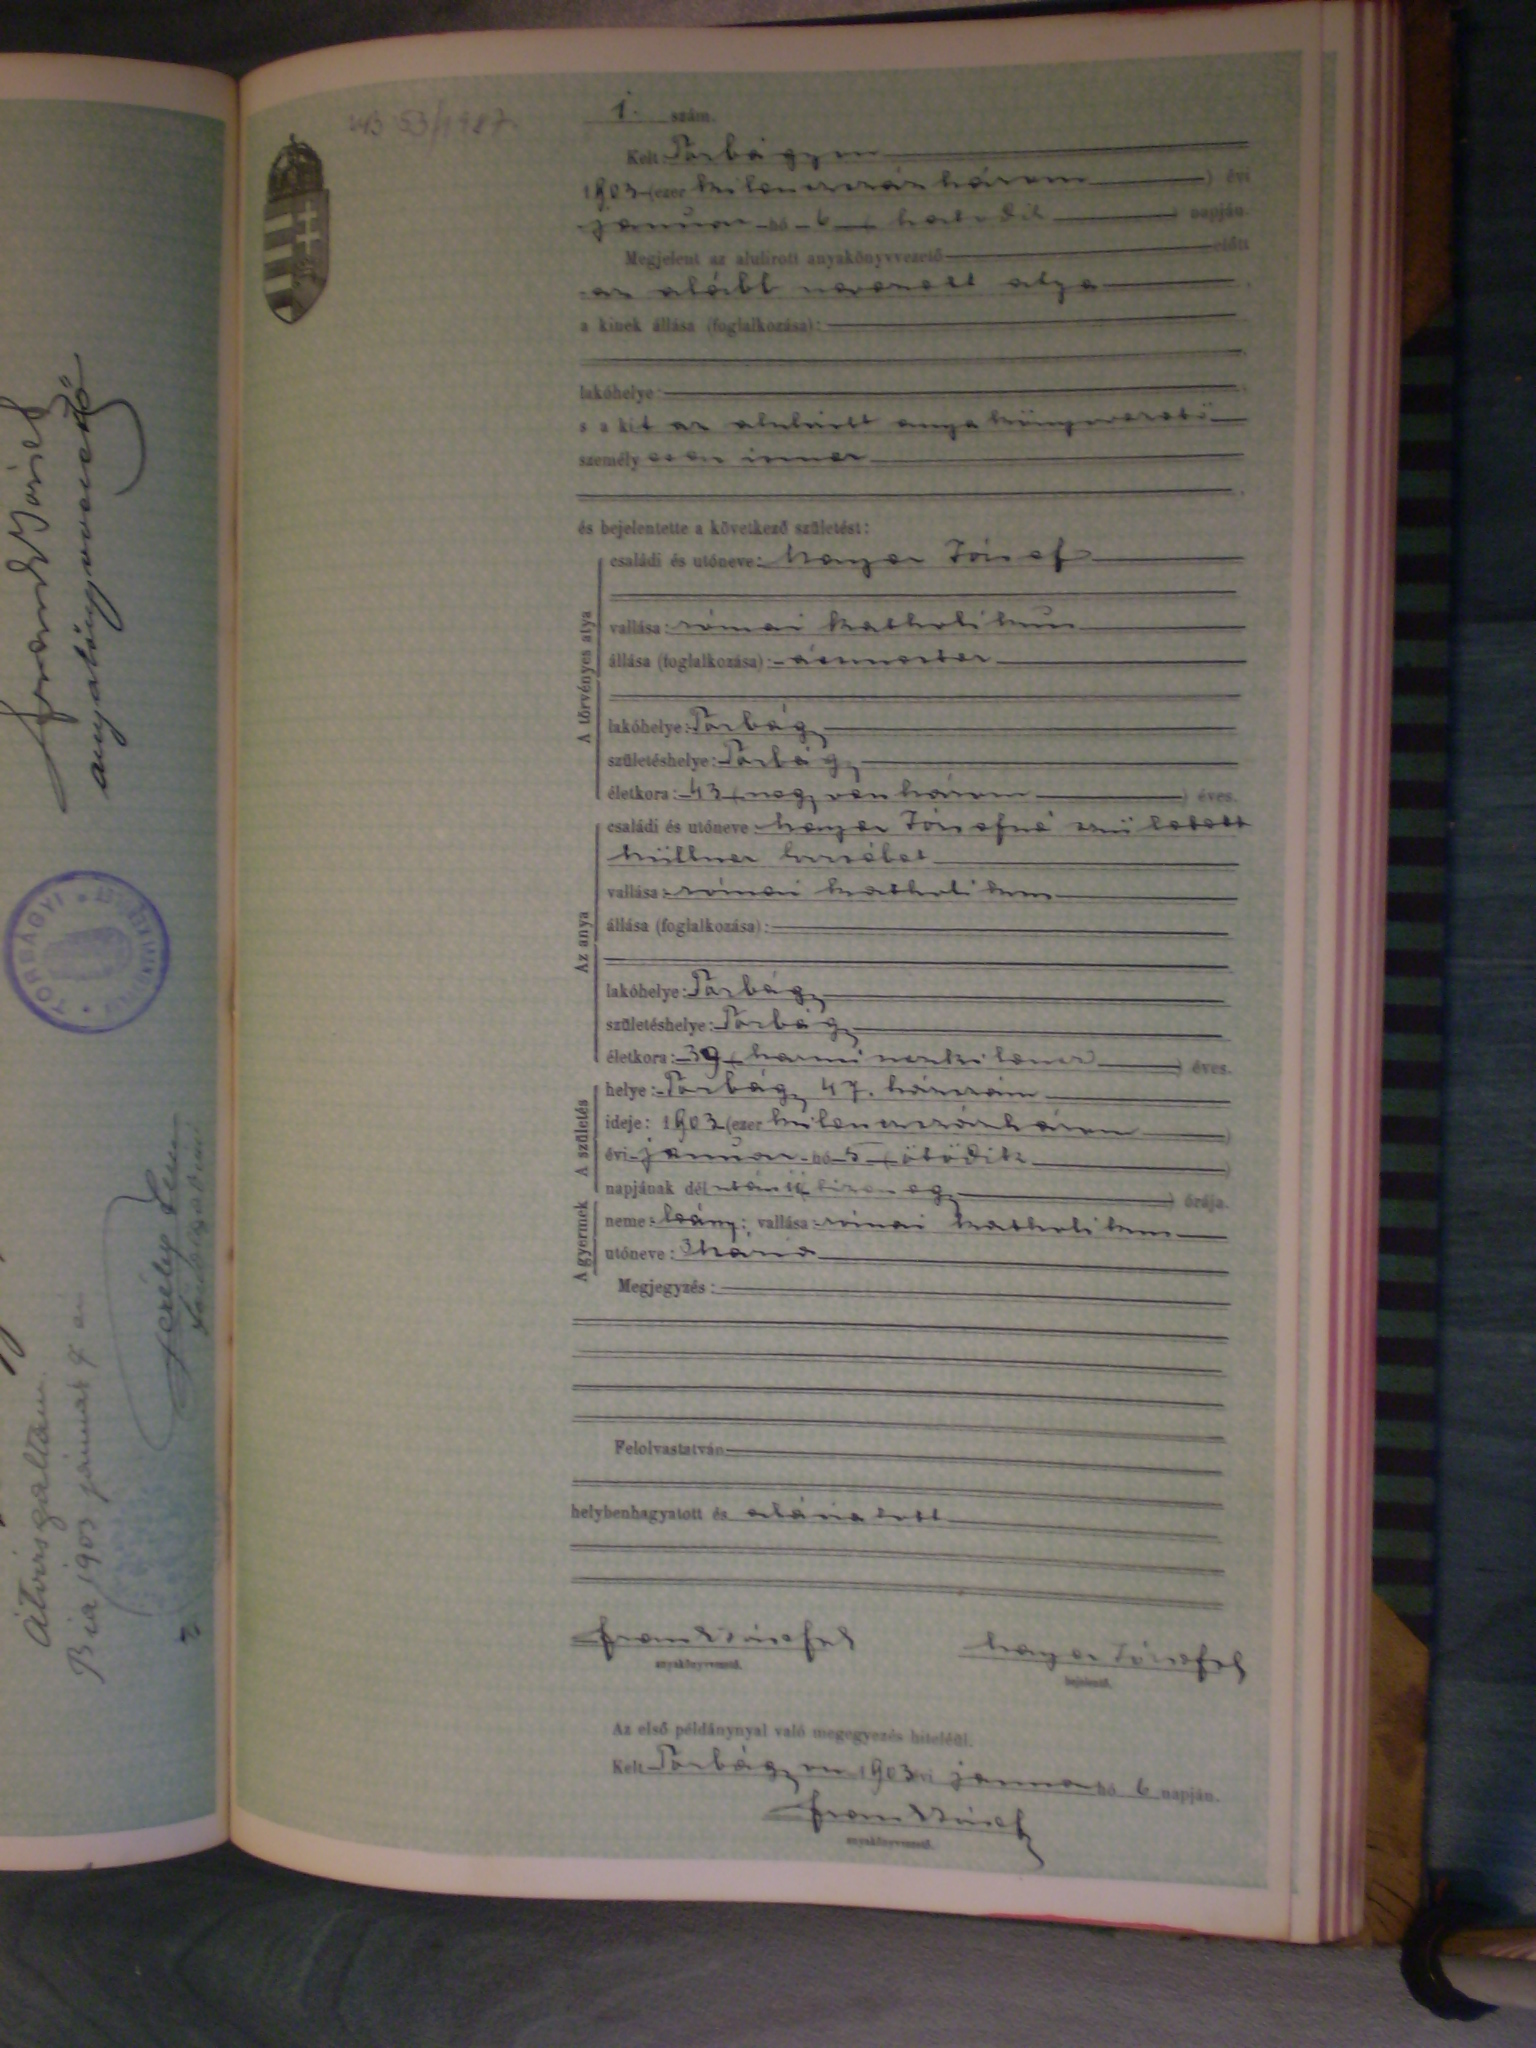 Átvizsgáltam.
Bia 1903 január 7 én
anyakönyvvezető
TORBÁGYI
1. szám.
Kelt Torbágyon
1903 (ezer kilenczszázhárom) évi
január hó 6 (hatodik) napján.
Megjelent az alulirott anyakönyvvezető előtt
az alább nevezett atya,
a kinek állása (foglalkozása):
lakóhelye:
s a kit az alulirott anyakönyvvezető
személyesen ismer
és bejelentette a következő születést:
A törvényes atya
családi és utóneve: József
vallása: római katholikus
állása (foglalkozása): ácsmester
lakóhelye: Torbágy
születéshelye: Torbágy
életkora: 43 (negyvenhárom) éves.
Az anya
családi és utóneve: Józsefné született
vallása: római katholikus
állása (foglalkozása):
lakóhelye: Torbágy
születéshelye: Torbágy
életkora: 39 (harminczkilencz) éves.
A születés
helye: Torbágy 47. házszám
ideje: 1903 (ezer kilenczszázhárom)
évi január hó 5 (ötödik)
napjának délutáni órája.
A gyermek
neme: leány; vallása: római katholikus
utóneve: Mária
Megjegyzés:
Felolvastatván
helybenhagyatott és aláiratott
anyakönyvvezető.
bejelentő.
Az első példánynyal való megegyezés hiteléül.
Kelt Torbágyon 1903 évi január hó 6 napján.
anyakönyvvezető.